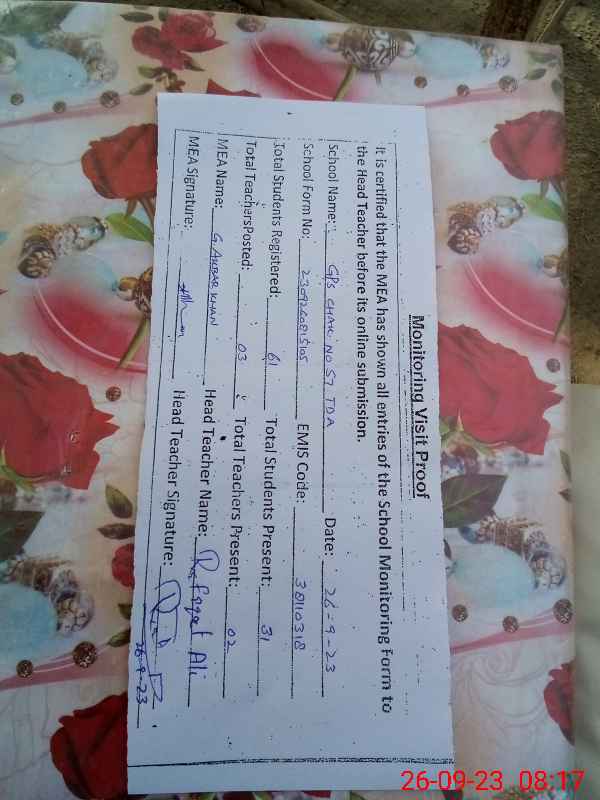 Monitoring Visit Proof
It is certified that the MEA has shown all entries of the School Monitoring Form to
the Head Teacher before its online submission.
School Name: GPS CHAK NO 57 TDA Date: 26-9-23
School Form No: 2309260815105 EMIS Code: 38110318
Total Students Registered: 61 Total Students Present: 31
Total TeachersPosted: 03 Total Teachers Present: 02
MEA Name: G. AKBAR KHAN Head Teacher Name: Ali
MEA Signature: Head Teacher Signature:
26-9-23
26-09-23 08:17